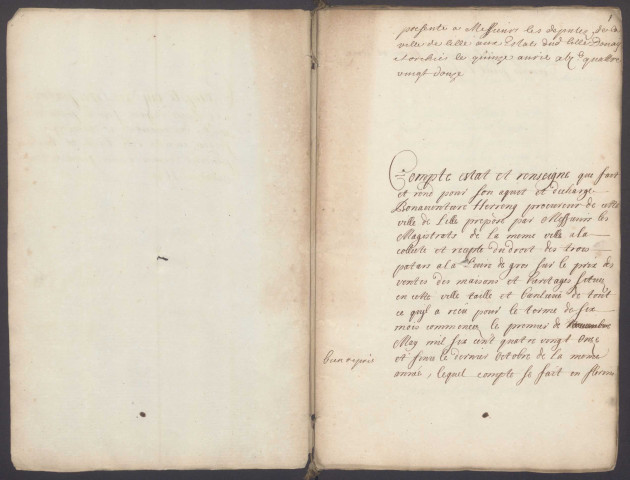 1
presente a Messieurs les deputez de la
ville de lille aux Estats de lille Douay
et orchies le quinze avril xvjc quattre
vingt douze
Compte estat et renseigne que fait
et rend pour son aquet et descharge
Bonaventure Herreng procureur de cette
ville de Lille preposé par Messieurs les
Magistrats de la meme ville a la
collecte et recepte du droit des trois
patars a la livre de gros sur le prix des
ventes des maisons et heritages scituez
en cette ville taille et banlieue de tout
ce qu'il a receu pour le terme de six
mois commencez le premier de novembre
May mil six cent quatre vingt onze
et finis le dernier octobre de la meme
année, lequel compte se fait en florins